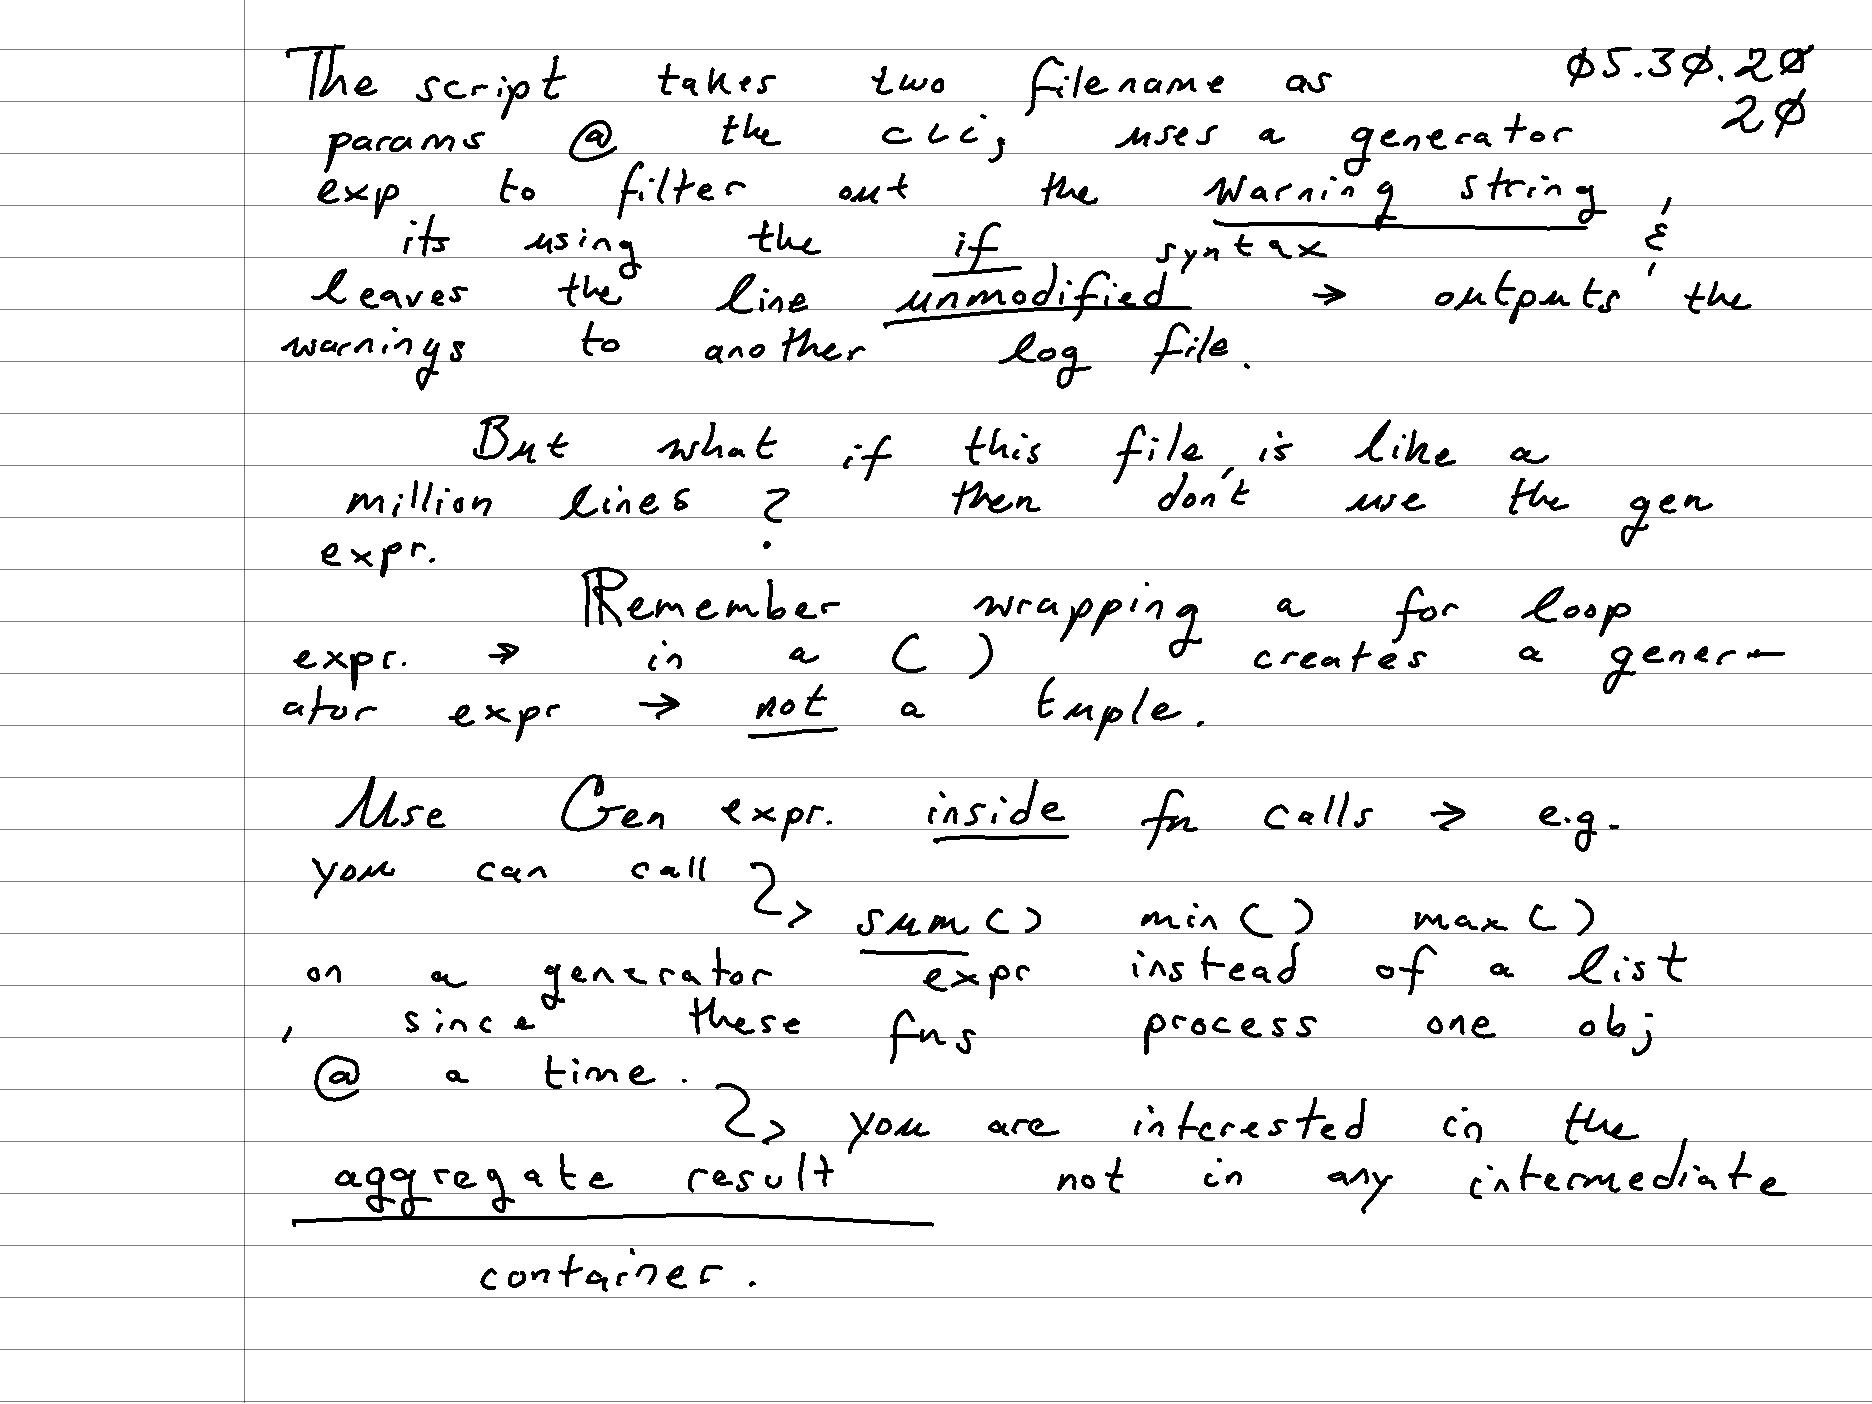 The script takes two filename as Ø5.3Ø.2Ø
2Ø
params @ the cli, uses a generator
exp to filter out the warning string,
its using the if syntax &
leaves the line unmodified → outputs the
warnings to another log file.
But what if this file, is like a
million lines? then don't use the gen
expr.
Remember wrapping a for loop
expr. → in a ( ) creates a gener-
ator expr → not a tuple.
Use Gen expr. inside fn calls → e.g.
you can call
sum() min() max()
on a generator expr instead of a list
, since these fns process one obj
@ a time.
you are interested in the,
aggregate result not in any intermediate
container.